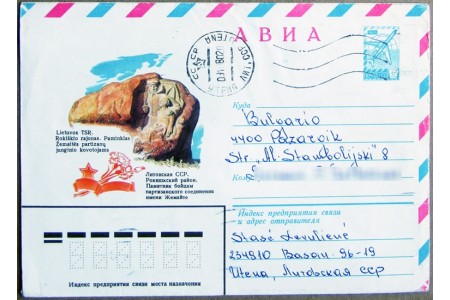 АВИА
СССР
Lietuvos TSR.
Rokiškio rajonas. Paminklas
Žemaitės partizanų
junginio kovotojams
Литовская ССР.
Рокишкский район.
Памятник бойцам
партизанского соединения
имени Жемайте
Куда
Bulgario
4400 Pazargik
Str. „M. Stambolijski" 8
Индекс предприятия связи
и адрес отправителя
Stasė
234910 Basan. 96-19
Utena, Литовская ССР
Индекс предприятия связи места назначения